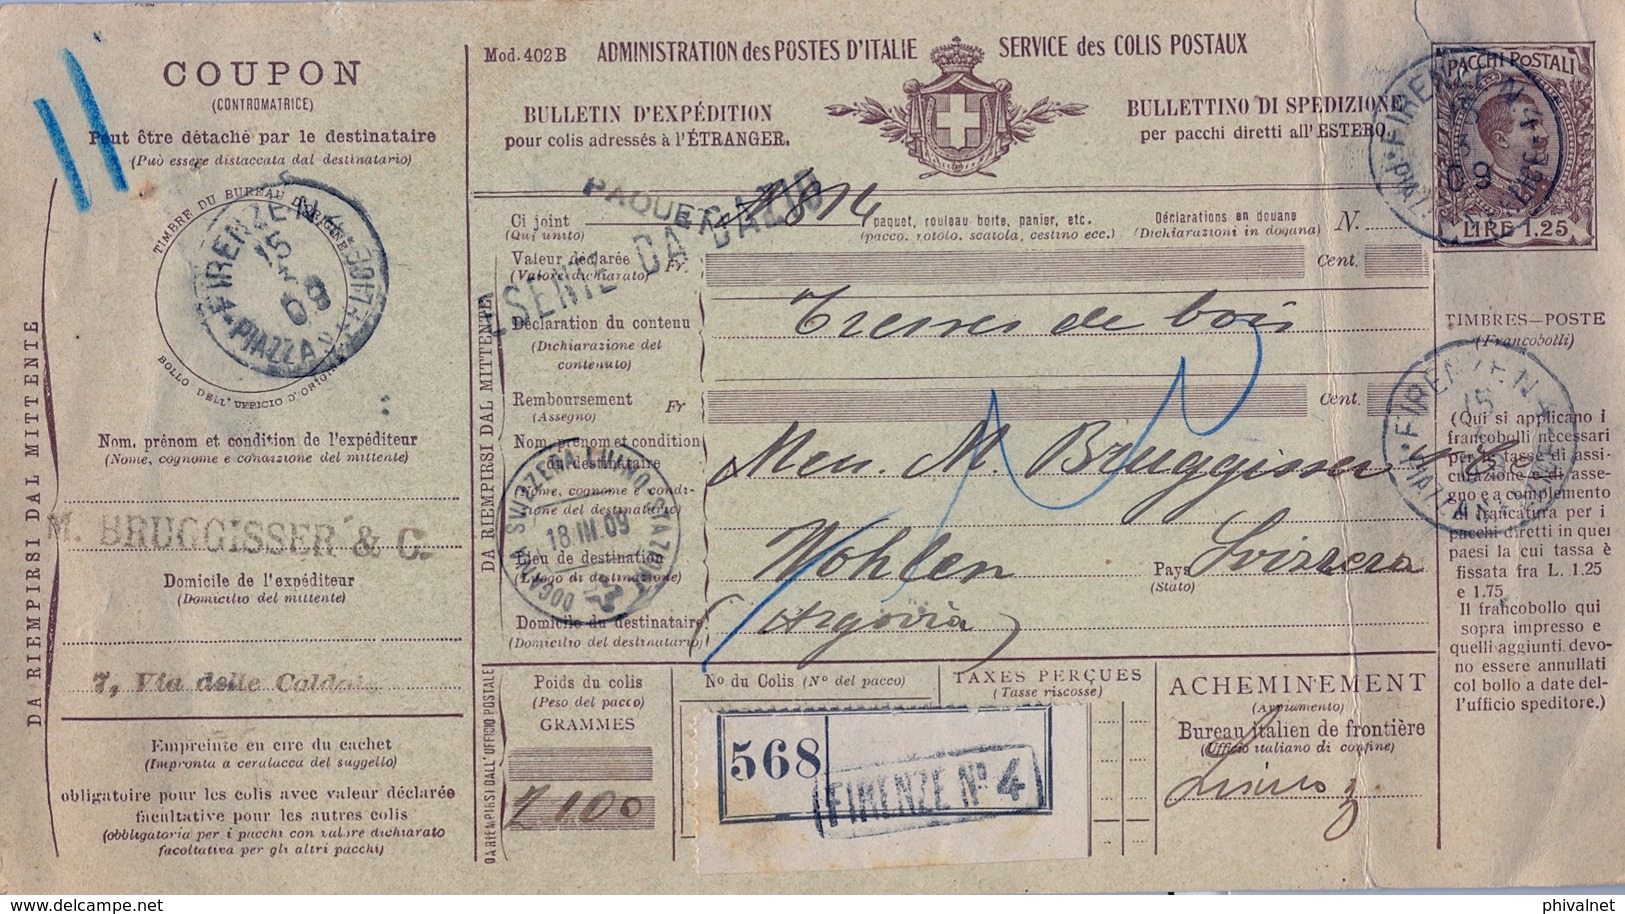 COUPON
(CONTROMATRICE)
Peut être détaché par le destinataire
(Può essere distaccata dal destinatario)
TIMBRE DU BUREAU D'ORIGINE
FIRENZE N. 4
15
09
PIAZZA
BOLLO DELL'UFFICIO D'ORIGINE
DA RIEMPIRSI DAL MITTENTE
Nom, prénom et condition de l'expéditeur
(Nome, cognome e condizione del mittente)
M. BRUGGISSER & C.
Domicile de l'expéditeur
(Domicilio del mittente)
7, Via delle Caldaie
Empreinte en cire du cachet
(Impronta a ceralacca del suggello)
obligatoire pour les colis avec valeur déclarée
facultative pour les autres colis
(obbligatoria per i pacchi con valore dichiarato
facoltativa per gli altri pacchi)
Mod. 402 B
ADMINISTRATION des POSTES D'ITALIE
SERVICE des COLIS POSTAUX
BULLETIN D'EXPÉDITION
pour colis adressés à l'ÉTRANGER.
BULLETTINO DI SPEDIZIONE
per pacchi diretti all'ESTERO.
PAQUET
ESENTE DA DAZIO
Ci joint
(Qui unito)
paquet, rouleau boite, panier, etc.
(pacco, rotolo, scatola, cestino ecc.)
Déclarations en douane
(Dichiarazioni in dogana)
N.
Valeur déclarée
(Valore dichiarato)
Fr.
Cent.
Déclaration du contenu
(Dichiarazione del
contenuto)
Tresses de bois
Remboursement
(Assegno)
Fr
Cent.
DA RIEMPIRSI DAL MITTENTE
Nom, prenom et condition
du destinataire
(Nome, cognome e condi-
zione del destinatario)
M. Bruggisser & Co
SVIZZERA LUINO STAZIONE
18.III.09
DOGANA
Lieu de destination
(Luogo di destinazione)
Wohlen
Pays
(Stato)
Svizzera
Domicile du destinataire
(Domicilio del destinatario)
(Argovia)
DA RIEMPIRSI DALL'UFFICIO POSTALE
Poids du colis
(Peso del pacco)
GRAMMES
2100
No du Colis (Nº del pacco)
568
FIRENZE Nº 4
TAXES PERÇUES
(Tasse riscosse)
ACHEMINEMENT
(Avviamento)
Bureau italien de frontière
(Ufficio italiano di confine)
PACCHI POSTALI
LIRE 1.25
FIRENZE N. 4
09
TIMBRES-POSTE
(Francobolli)
FIRENZE N. 4
15
(Qui si applicano i
francobolli necessari
per le tasse di assi-
curazione e di asse-
gno e a complemento
di francatura per i
pacchi diretti in quei
paesi la cui tassa è
fissata fra L. 1.25
e 1.75
Il francobollo qui
sopra impresso e
quelli aggiunti devo-
no essere annullati
col bollo a date del-
l'ufficio speditore.)
www.delcampe.net
phivalnet